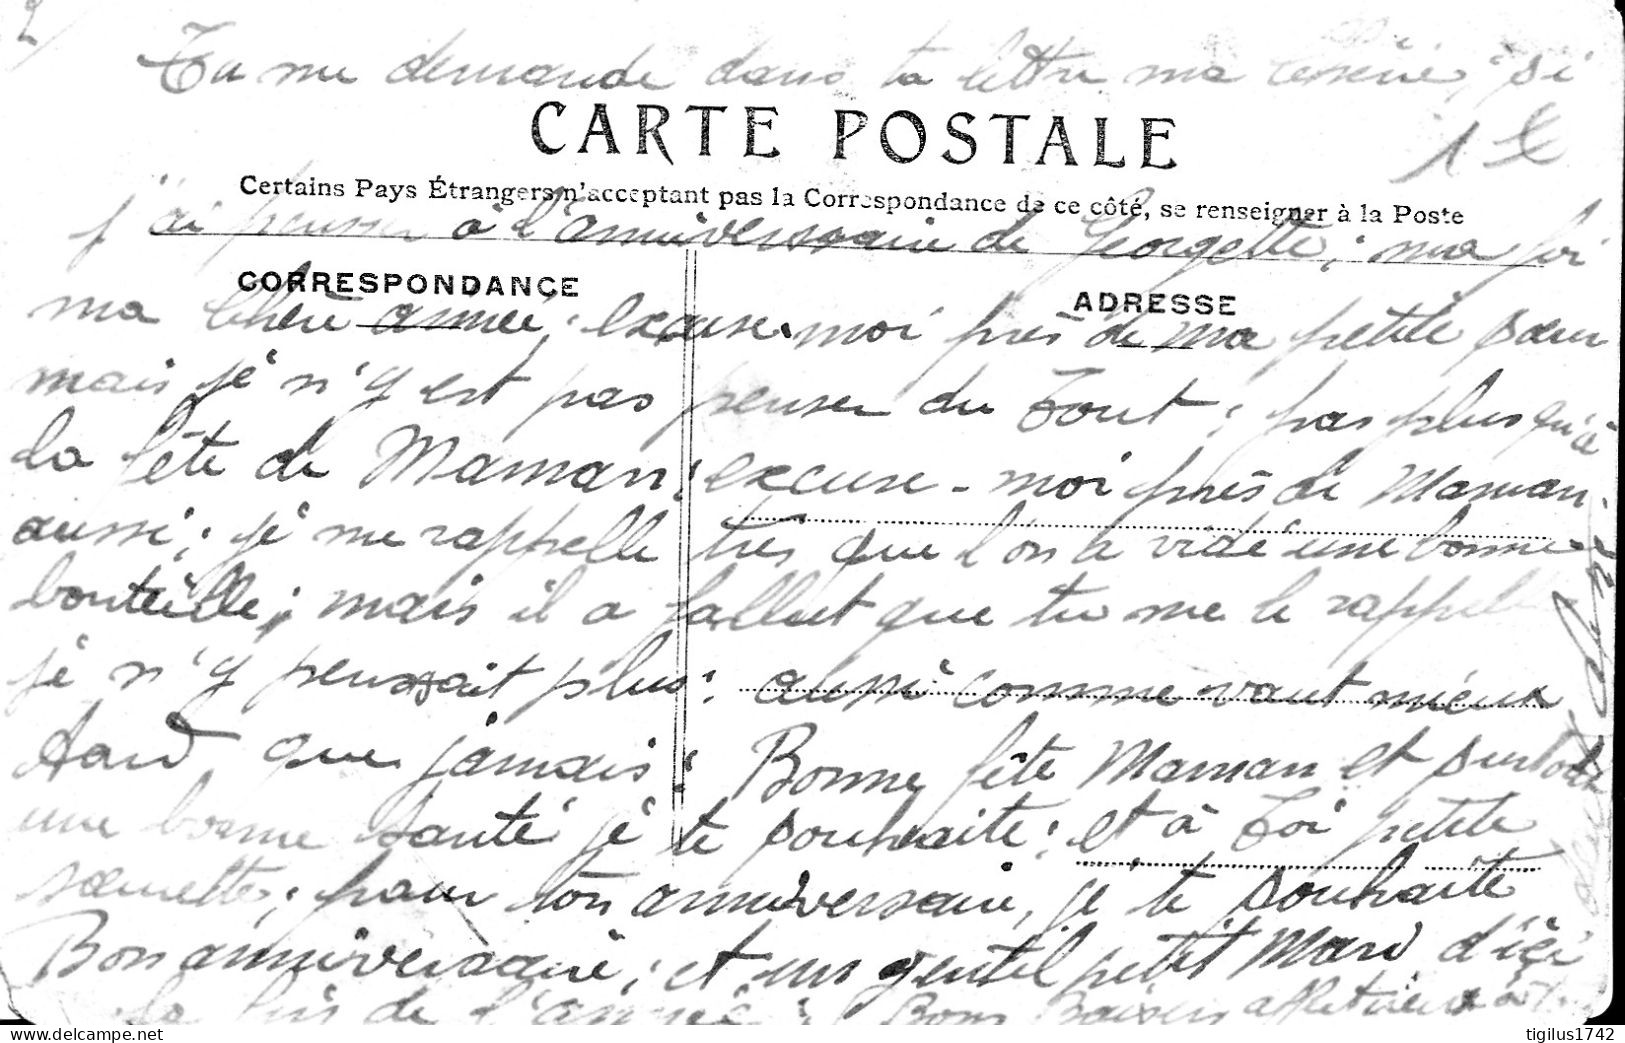 2/
Tu me demande dans ta lettre ma Chérie, si
CARTE POSTALE
1
Certains Pays Étrangers n'acceptant pas la Correspondance de ce côté, se renseigner à la Poste
j'ai penser à l'anniversaire de Georgette; ma foi
CORRESPONDANCE
ADRESSE
ma Chère aimée; excuse-moi près de ma petite sœur
mais je n'y est pas penser du Tout; pas plus qu'à
la fête de Maman; excuse-moi près de Maman
aussi; je me rappelle très que l'on a vidé une bonne
bouteille; mais il a fallut que tu me le rappelle
je n'y pensait plus; aussi comme vaut mieux
tard que jamais; Bonne fête Maman et surtout
une bonne santé je te souhaite; et à Toi petite
sœurette; pour ton anniversaire, je te souhaite
Bon anniversaire; et un gentil petit Mari d'içi
la fin de l'année; Bons Baisers affectueux à
tigilus1742